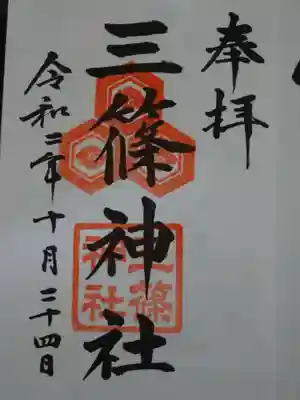 奉拝
三篠神社
三篠神社
令和二年十月二十四日